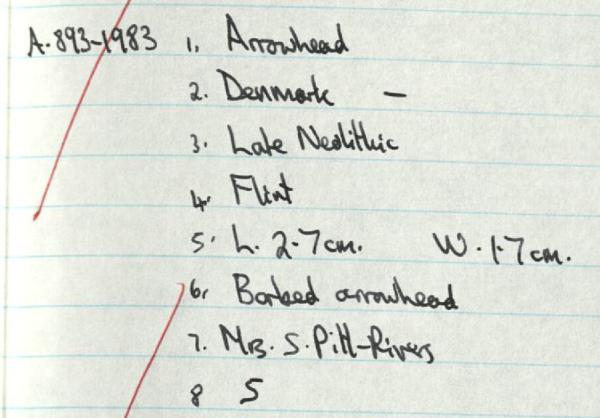 A.893-1983 1. Arrowhead
2. Denmark —
3. Late Neolithic
4. Flint
5. L. 2.7cm. W. 1.7cm.
6. Barbed arrowhead
7. Mrs. S. Pitt-Rivers
8 5